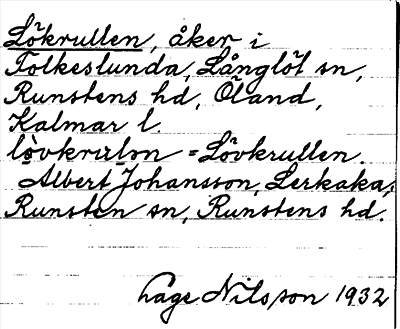 Lökrullen, åker i
Folkeslunda, Långlöt sn,
Runstens hd, Öland,
Kalmar l.
lòvkrɯlon = Lövkrullen.
Albert Johansson, Lerkaka,
Runsten sn, Runstens hd.
Åge Nilsson 1932